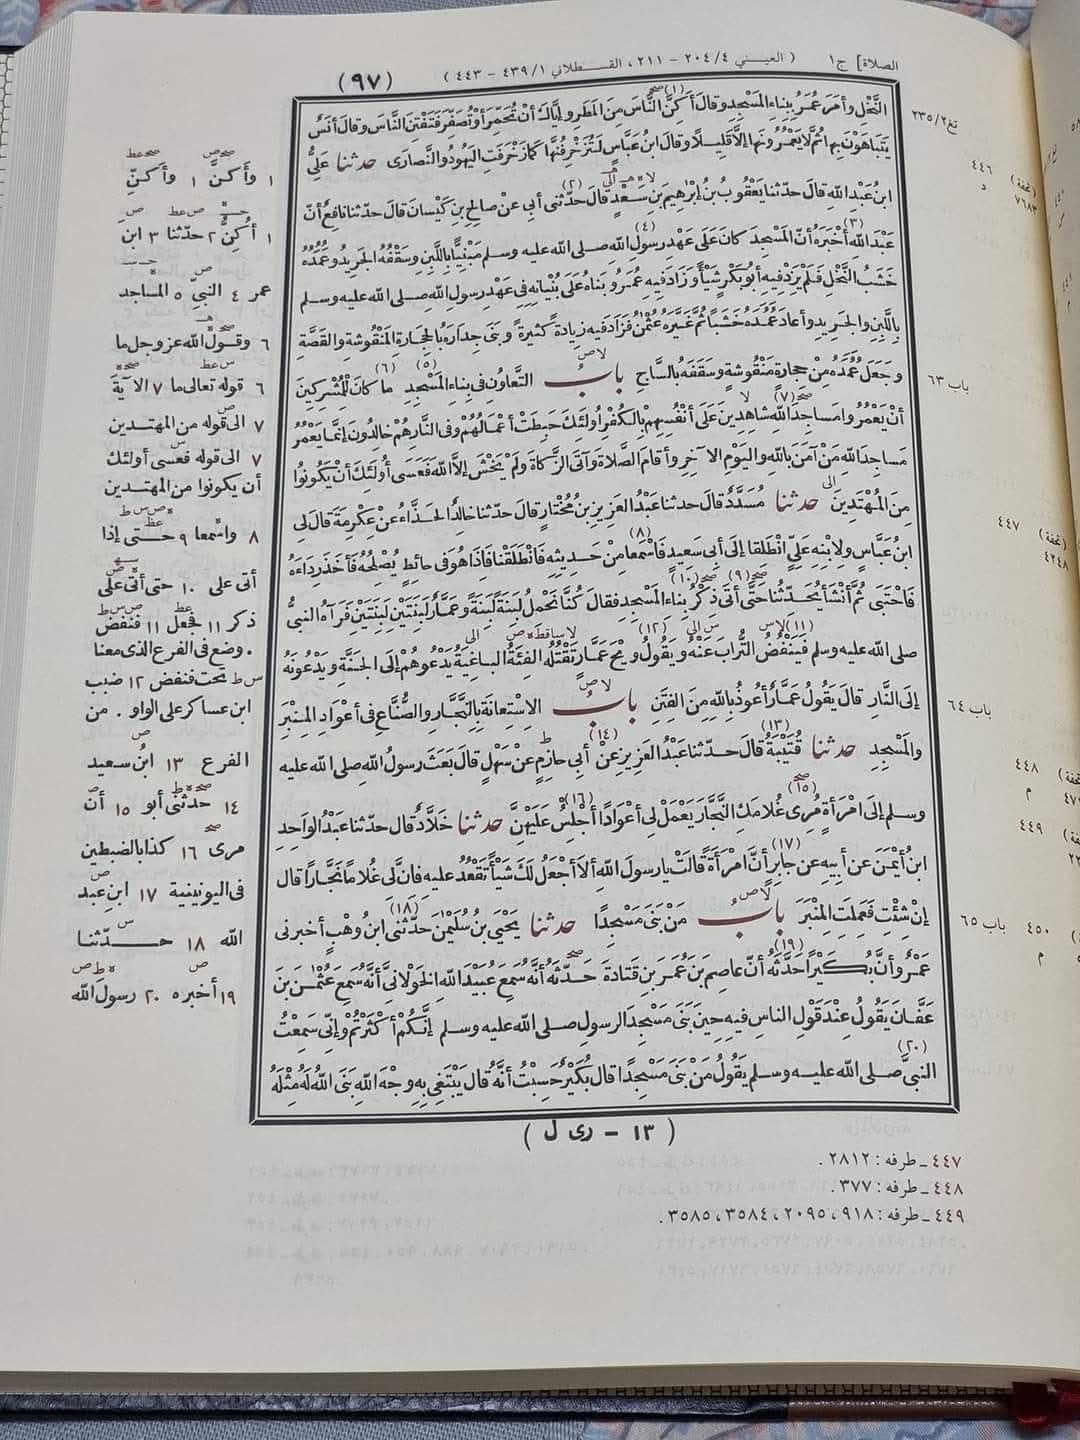 الصلاة] ج١ ( العيني ٢٠٤/٤ - ٢١١ ، القسطلاني ٤٣٩/١ - ٤٤٣ ) (٩٧)
النَّخْلِ وأمَرَ عُمَرُ بِبِناءِ المَسْجِدِ وقالَ (١) أَكِنَّ النَّاسَ مِنَ المَطَرِ وإيَّاكَ أنْ تُحَمِّرَ أوْ تُصَفِّرَ فَتَفْتِنَ النَّاسَ وقالَ أنَسٌ
يَتَباهَوْنَ بِها ثُمَّ لا يَعْمُرُونَها إلَّا قَلِيلًا وقالَ ابنُ عَبَّاسٍ لَتُزَخْرِفُنَّها كَما زَخْرَفَتِ اليَهُودُ والنَّصارَى حدثنا عَلِيُّ
ابنُ عَبْدِ اللهِ قالَ حدّثنا يَعْقُوبُ بنُ إبْرٰهِيمَ بنِ سَعْدٍ قالَ (٢) حدّثنى أبِى عنْ صالِحِ بنِ كَيْسانَ قالَ حدّثنا نافِعٌ أنَّ
عَبْدَ اللهِ (٣) أخْبَرَهُ أنَّ المَسْجِدَ كانَ عَلَى عَهْدِ رسولِ (٤) اللهِ صلى الله عليه وسلم مَبْنِيًّا بِاللَّبِنِ وسَقْفُهُ الجَرِيدُ وعُمُدُهُ
خَشَبُ النَّخْلِ فَلَمْ يَزِدْ فِيهِ أبُو بَكْرٍ شَيْأً وزَادَ فِيهِ عُمَرُ وبَناهُ عَلَى بُنْيانِهِ فِى عَهْدِ رسولِ اللهِ صلى الله عليه وسلم
بِاللَّبِنِ والجَرِيدِ وأعادَ عُمُدَهُ خَشَبًا ثُمَّ غَيَّرَهُ عُثْمٰنُ فَزَادَ فِيهِ زِيادَةً كَثِيرَةً وبَنَى جِدَارَهُ بِالحِجارَةِ المَنْقُوشَةِ والقَصَّةِ
وجَعَلَ عُمُدَهُ مِنْ حِجارَةٍ مَنْقُوشَةٍ وسَقَفَهُ بِالسَّاجِ بابُ التَّعاوُنِ فِى بِناءِ المَسْجِدِ (٥) (٦) ما كانَ لِلْمُشْرِكِينَ
أنْ يَعْمُرُوا مَساجِدَ (٧) اللهِ شاهِدِينَ عَلَى أنْفُسِهِمْ بِالكُفْرِ أُولٰئِكَ حَبِطَتْ أعْمَالُهُمْ وفِى النَّارِ هُمْ خالِدُونَ إنَّما يَعْمُرُ
مَساجِدَ اللهِ مَنْ آمَنَ بِاللهِ واليَوْمِ الآخِرِ وأقامَ الصَّلاةَ وآتَى الزَّكاةَ ولَمْ يَخْشَ إلَّا اللهَ فَعَسَى أُولٰئِكَ أنْ يَكُونُوا
مِنَ المُهْتَدِينَ حدثنا مُسَدَّدٌ قالَ حدثنا عَبْدُ العَزِيزِ بنُ مُخْتارٍ قالَ حدّثنا خالِدٌ الحَذَّاءُ عنْ عِكْرِمَةَ قالَ لِى
ابنُ عَبَّاسٍ ولِابْنِهِ عَلِيٍّ انْطَلِقا إلَى أبِى سَعِيدٍ فَاسْمَعا (٨) مِنْ حَدِيثِهِ فَانْطَلَقْنا فَإذَا هُوَ فِى حائِطٍ يُصْلِحُهُ فَأخَذَ رِدَاءَهُ
فَاحْتَبَى ثُمَّ أنْشَأَ يُحَدِّثُنا حَتَّى (٩) أتَى (١٠) ذِكْرُ بِناءِ المَسْجِدِ فقالَ كُنَّا نَحْمِلُ لَبِنَةً لَبِنَةً وعَمَّارٌ لَبِنَتَيْنِ لَبِنَتَيْنِ فَرَآهُ النبىُّ
صلى الله عليه وسلم فَيَنْفُضُ (١١) التُّرَابَ عَنْهُ ويَقُولُ (١٢) ويْحَ عَمَّارٍ تَقْتُلُهُ الفِئَةُ الباغِيَةُ يَدْعُوهُمْ إلَى الجَنَّةِ ويَدْعُونَهُ
إلَى النَّارِ قالَ يَقُولُ عَمَّارٌ أعُوذُ بِاللهِ مِنَ الفِتَنِ بابُ الاِسْتِعانَةِ بِالنَّجَّارِ والصُّنَّاعِ فِى أعْوَادِ المِنْبَرِ
والمَسْجِدِ حدثنا قُتَيْبَةُ (١٣) قالَ حدّثنا عَبْدُ العَزِيزِ عنْ (١٤) أبِى حازِمٍ عنْ سَهْلٍ قالَ بَعَثَ رسولُ اللهِ صلى الله عليه
وسلم إلَى امْرَأةٍ مُرِى (١٥) غُلامَكِ النَّجَّارَ يَعْمَلْ لِى أعْوَادًا أجْلِسُ (١٦) عَلَيْهِنَّ حدثنا خَلَّادٌ قالَ حدّثنا عَبْدُ الوَاحِدِ
ابنُ أيْمَنَ عنْ أبِيهِ عنْ جابِرٍ (١٧) أنَّ امْرَأةً قالَتْ يا رسولَ اللهِ ألَا أجْعَلُ لَكَ شَيْأً تَقْعُدُ عليهِ فَإنَّ لِى غُلامًا نَجَّارًا قالَ
إنْ شِئْتِ فَعَمِلَتِ المِنْبَرَ بابُ مَنْ بَنَى مَسْجِدًا حدثنا يَحْيَى بنُ سُلَيْمٰنَ حدّثنى (١٨) ابنُ وهْبٍ أخبرنى
عَمْرٌو أنَّ بُكَيْرًا حَدَّثَهُ (١٩) أنَّ عاصِمَ بنَ عُمَرَ بنِ قَتادَةَ حَدَّثَهُ أنَّهُ سَمِعَ عُبَيْدَ اللهِ الخَوْلانِىَّ أنَّهُ سَمِعَ عُثْمٰنَ بنَ
عَفَّانَ يَقُولُ عِنْدَ قَوْلِ الناسِ فِيهِ حِينَ بَنَى مَسْجِدَ الرسولِ صلى الله عليه وسلم إنَّكُمْ أكْثَرْتُمْ وإنِّى سَمِعْتُ
النبىَّ (٢٠) صلى الله عليه وسلم يَقُولُ مَنْ بَنَى مَسْجِدًا قالَ بُكَيْرٌ حَسِبْتُ أنَّهُ قالَ يَبْتَغِى بِهِ وجْهَ اللهِ بَنَى اللهُ لَهُ مِثْلَهُ
( ١٣ - رى ل )
٤٤٧ ـ طرفه : ٢٨١٢ .
٤٤٨ ـ طرفه : ٣٧٧ .
٤٤٩ ـ طرفه : ٩١٨ ، ٢٠٩٥ ، ٣٥٨٤ ، ٣٥٨٥ .
تغ ٢٣٥/٢
٤٤٦ (تحفة)
د ٧٦٨٣
باب ٦٣
٤٤٧ (تحفة)
٤٢٤٨
باب ٦٤
٤٤٨
م
٤٤٩
باب ٦٥ ٤٥٠
م
١ وأَكِنَّ ١ وأَكِنِّ
١ أكِنُّ ٢ حدّثنا ٣ ابنَ
عمر ٤ النبىِّ ٥ المساجد
٦ وقول الله عز وجل ما
٦ قوله تعالى ما ٧ الآيةَ
٧ الى قوله من المهتدين
٧ الى قوله فعسى أولئك
أن يكونوا من المهتدين
٨ واسمعا ٩ حتى إذا
أتى على ١٠ حتى أتى على
ذكر ١١ فجعل ١١ فنفض
. وضع فى الفرع الذى معنا
تحت فنفض ١٢ ضبب
ابن عساكر على الواو . من
الفرع ١٣ ابنُ سعيد
١٤ حدثنى أبو ١٥ أن
مرى ١٦ كذا بالضبطين
فى اليونينية ١٧ ابنِ عبد
الله ١٨ حدّثنا
١٩ أخبره ٢٠ رسولَ الله